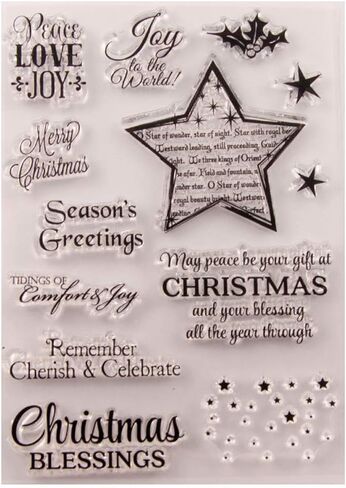 Peace
LOVE
JOY
Joy
to the
World!
Merry
Christmas
Star of wonder, star of night. Star with royal be
Westward leading, still proceeding, Guid
We three kings of Orient
afar. Field and fountain,
Star of Wonder
royal beauty bright. Westward
leading, Perfect
Season's
Greetings
May peace be your gift at
CHRISTMAS
and your blessing
all the year through
TIDINGS OF
Comfort & Joy
Remember
Cherish & Celebrate
Christmas
BLESSINGS